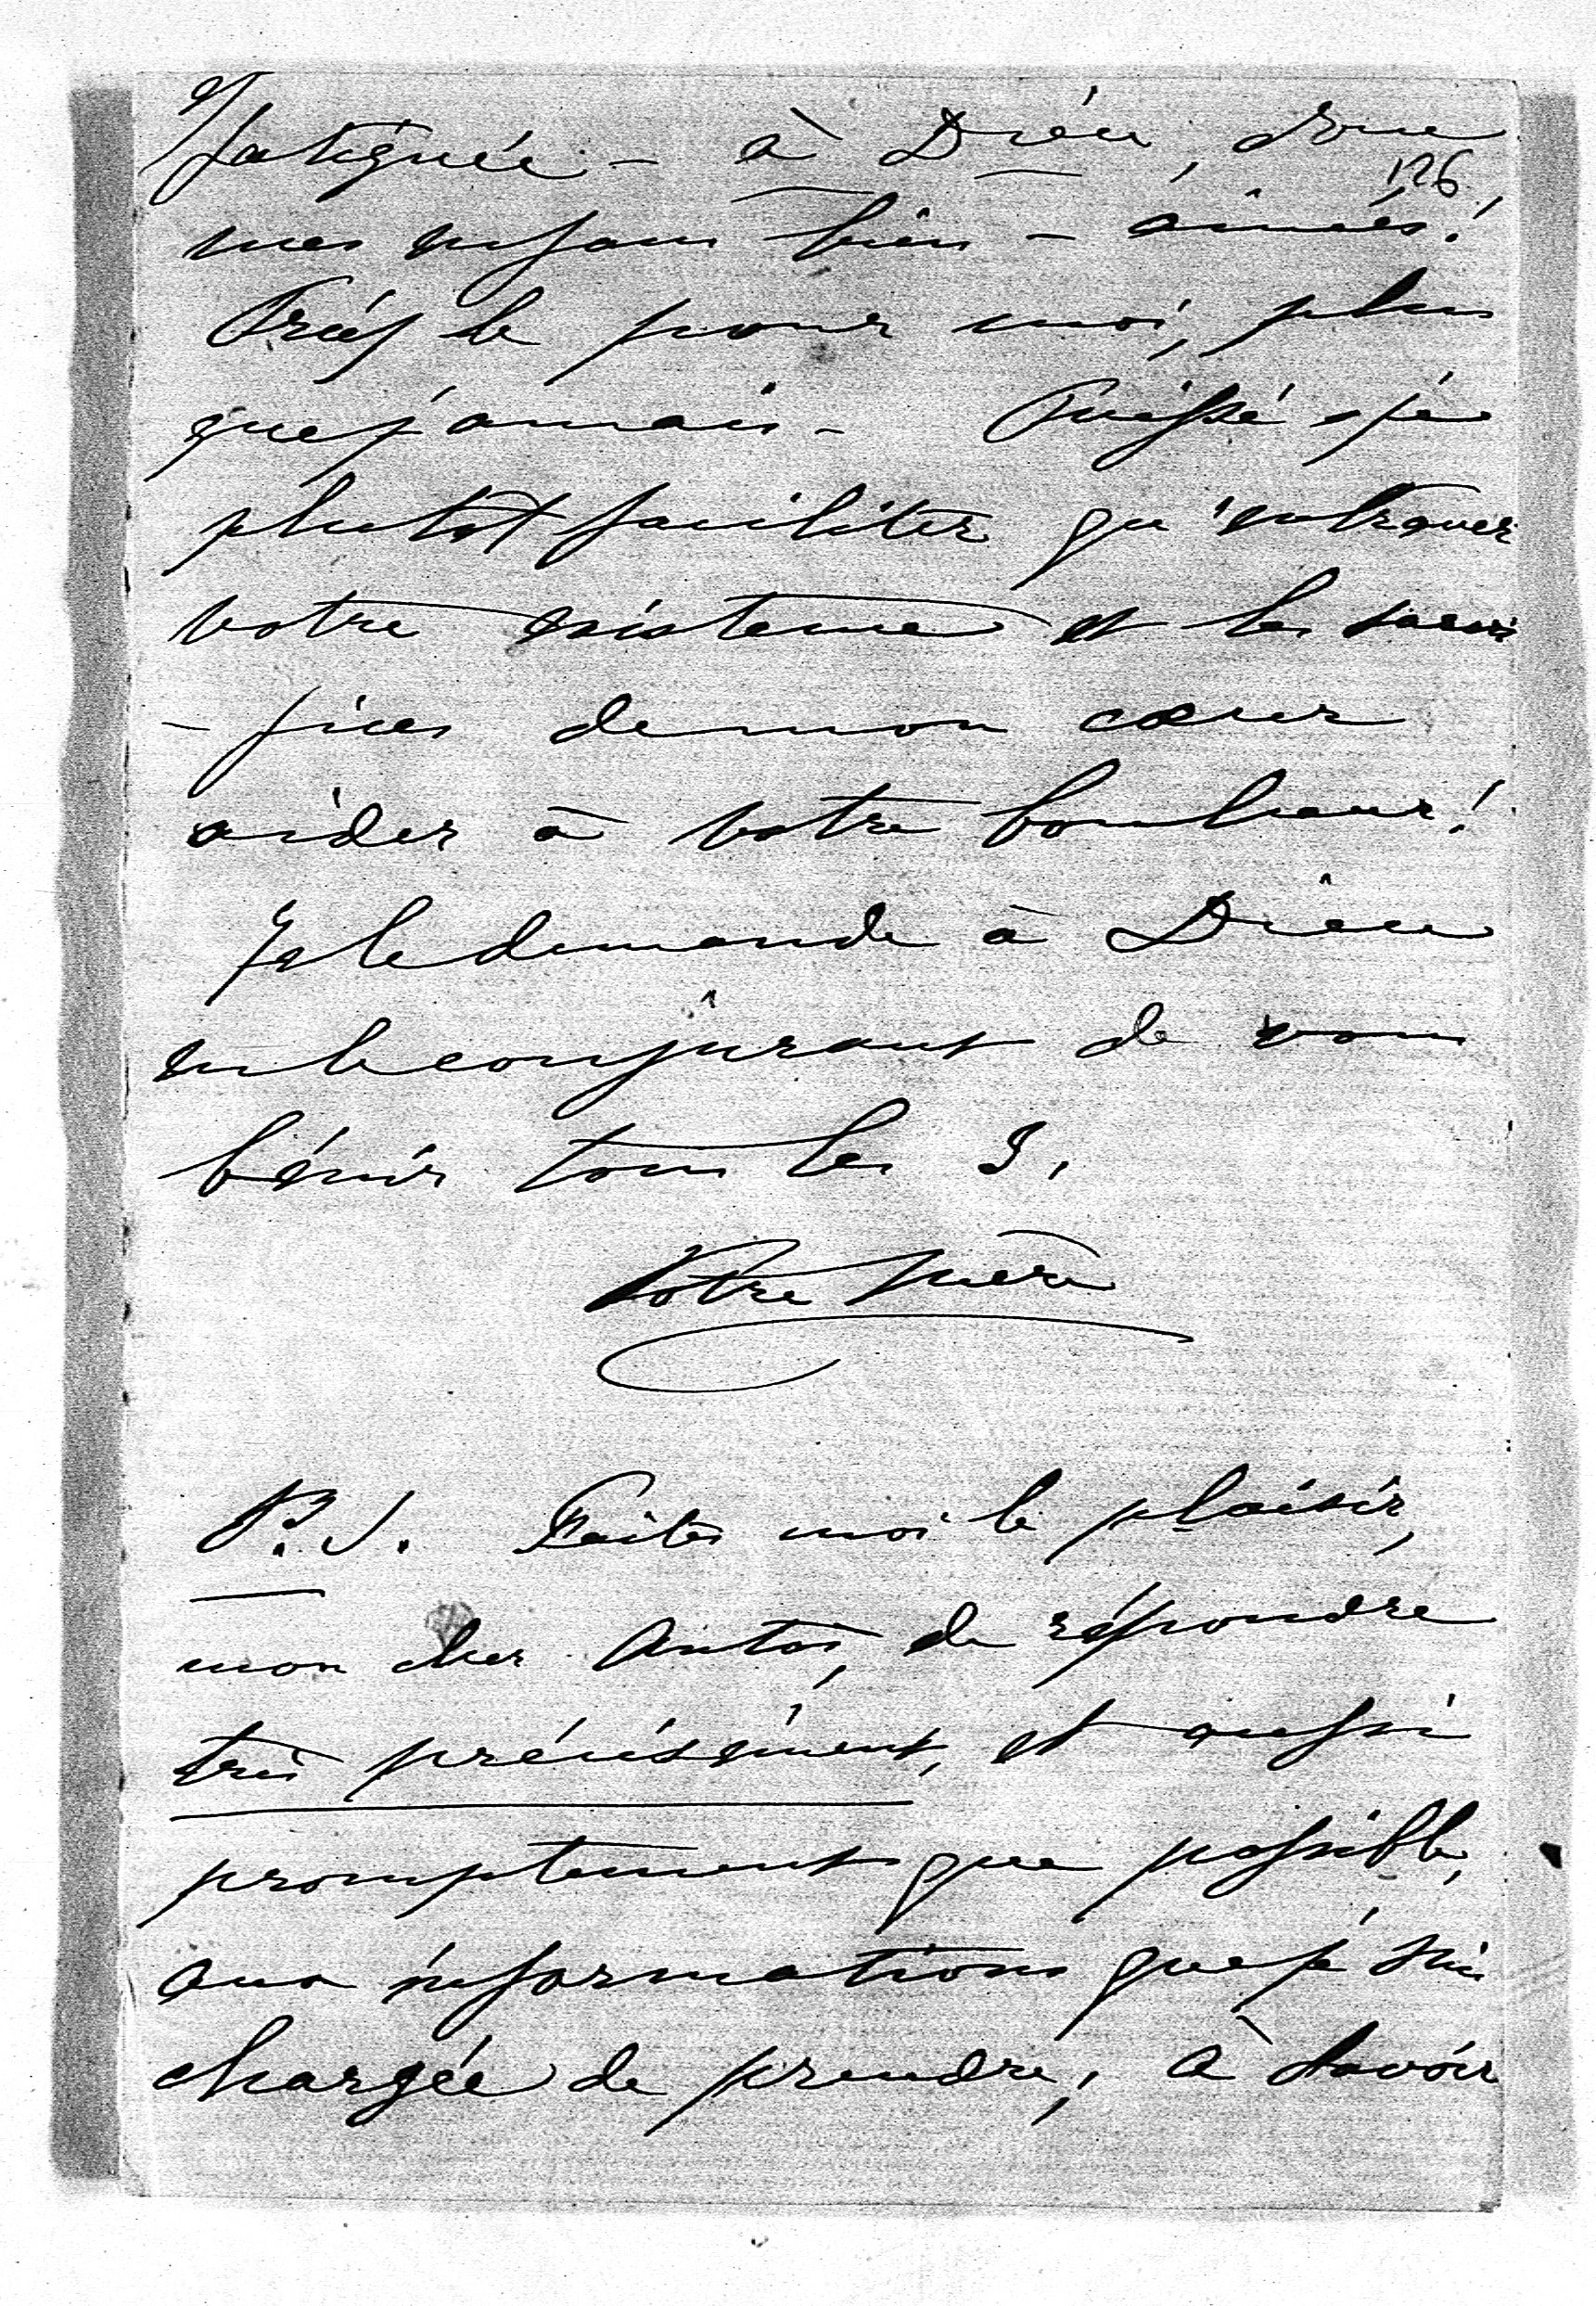 fatiguée - à Dieu, donc
126
mes enfans bien-aimés!
Priez le pour moi, plus
que jamais - Puissé-je
plutôt faciliter qu'entraver
votre existence et les sacri
-fices de mon cœur
aider à votre bonheur!
Je le demande à Dieu
en le conjurant de vous
bénir tous les 3.
Votre mère
P.S. Faites moi le plaisir,
mon cher Antoi, de répondre
très précisément, et aussi
promptement que possible,
aux informations que je suis
chargée de prendre, à savoir